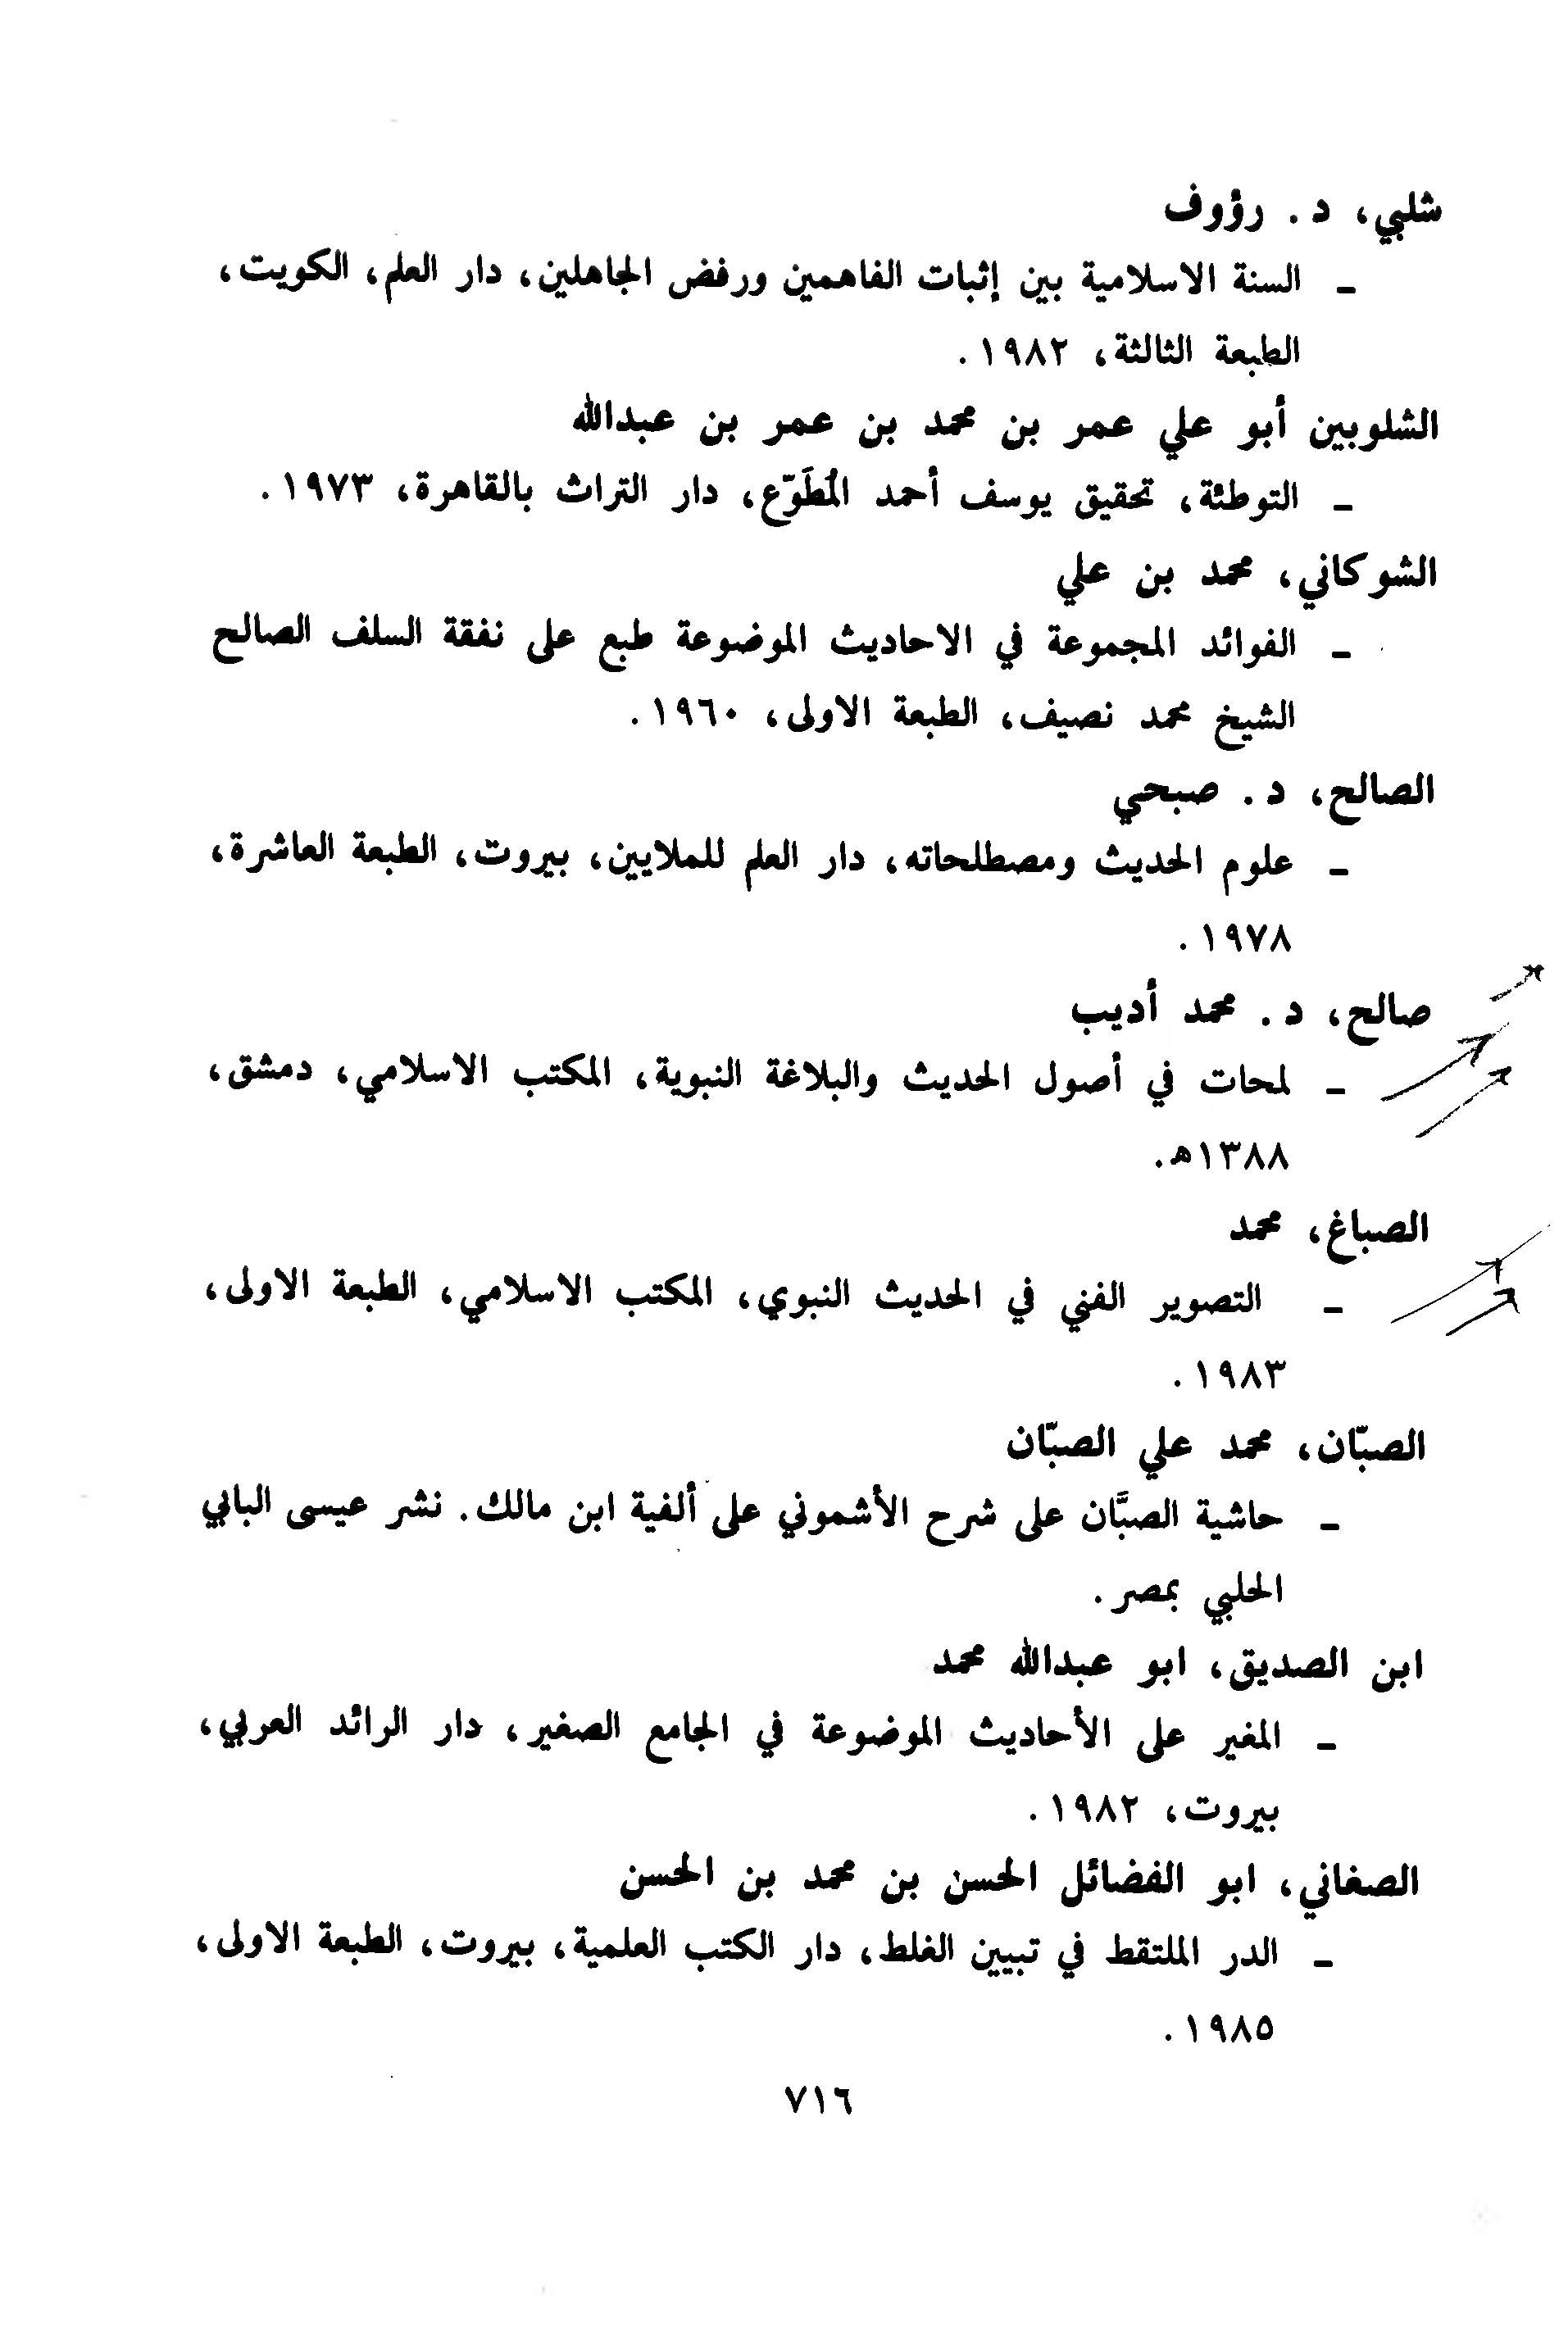 شلبي، د. رؤوف
ـ السنة الاسلامية بين إثبات الفاهمين ورفض الجاهلين، دار العلم، الكويت،
الطبعة الثالثة، ١٩٨٢.
الشلوبين أبو علي عمر بن محمد بن عمر بن عبدالله
ـ التوطئة، تحقيق يوسف أحمد المُطَوّع، دار التراث بالقاهرة، ١٩٧٣.
الشوكاني، محمد بن علي
ـ الفوائد المجموعة في الاحاديث الموضوعة طبع على نفقة السلف الصالح
الشيخ محمد نصيف، الطبعة الاولى، ١٩٦٠.
الصالح، د. صبحي
ـ علوم الحديث ومصطلحاته، دار العلم للملايين، بيروت، الطبعة العاشرة،
١٩٧٨.
صالح، د. محمد أديب
ـ لمحات في أصول الحديث والبلاغة النبوية، المكتب الاسلامي، دمشق،
١٣٨٨ه.
الصباغ، محمد
ـ التصوير الفني في الحديث النبوي، المكتب الاسلامي، الطبعة الاولى،
١٩٨٣.
الصبّان، محمد علي الصبّان
ـ حاشية الصبَّان على شرح الأشموني على ألفية ابن مالك. نشر عيسى البابي
الحلبي بمصر.
ابن الصديق، ابو عبدالله محمد
ـ المغير على الأحاديث الموضوعة في الجامع الصغير، دار الرائد العربي،
بيروت، ١٩٨٢.
الصغاني، ابو الفضائل الحسن بن محمد بن الحسن
ـ الدر الملتقط في تبيين الغلط، دار الكتب العلمية، بيروت، الطبعة الاولى،
١٩٨٥.
٧١٦